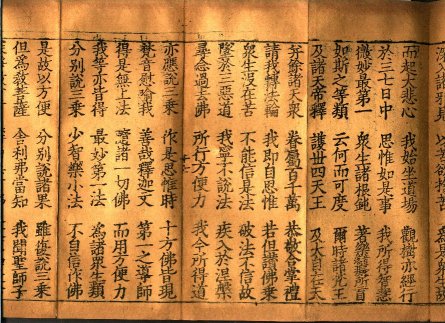 而起大悲心 我始坐道場 觀樹亦經行
於三七日中 思惟如是事 我所得智慧
微妙最第一 眾生諸根鈍 著樂癡所盲
如斯之等類 云何而可度 爾時諸梵王
及諸天帝釋 護世四天王 及大自在天
并餘諸天眾 眷屬百千萬 恭敬合掌禮
請我轉法輪 我即自思惟 若但讚佛乘
眾生沒在苦 不能信是法 破法不信故
墜於三惡道 我寧不說法 疾入於涅槃
尋念過去佛 所行方便力 我今所得道
亦應說三乘 作是思惟時 十方佛皆現
梵音慰喻我 善哉釋迦文 第一之導師
得是無上法 隨諸一切佛 而用方便力
我等亦皆得 最妙第一法 為諸眾生類
分別說三乘 少智樂小法 不自信作佛
是故以方便 分別說諸果 雖復說三乘
但為教菩薩 舍利弗當知 我聞聖師子